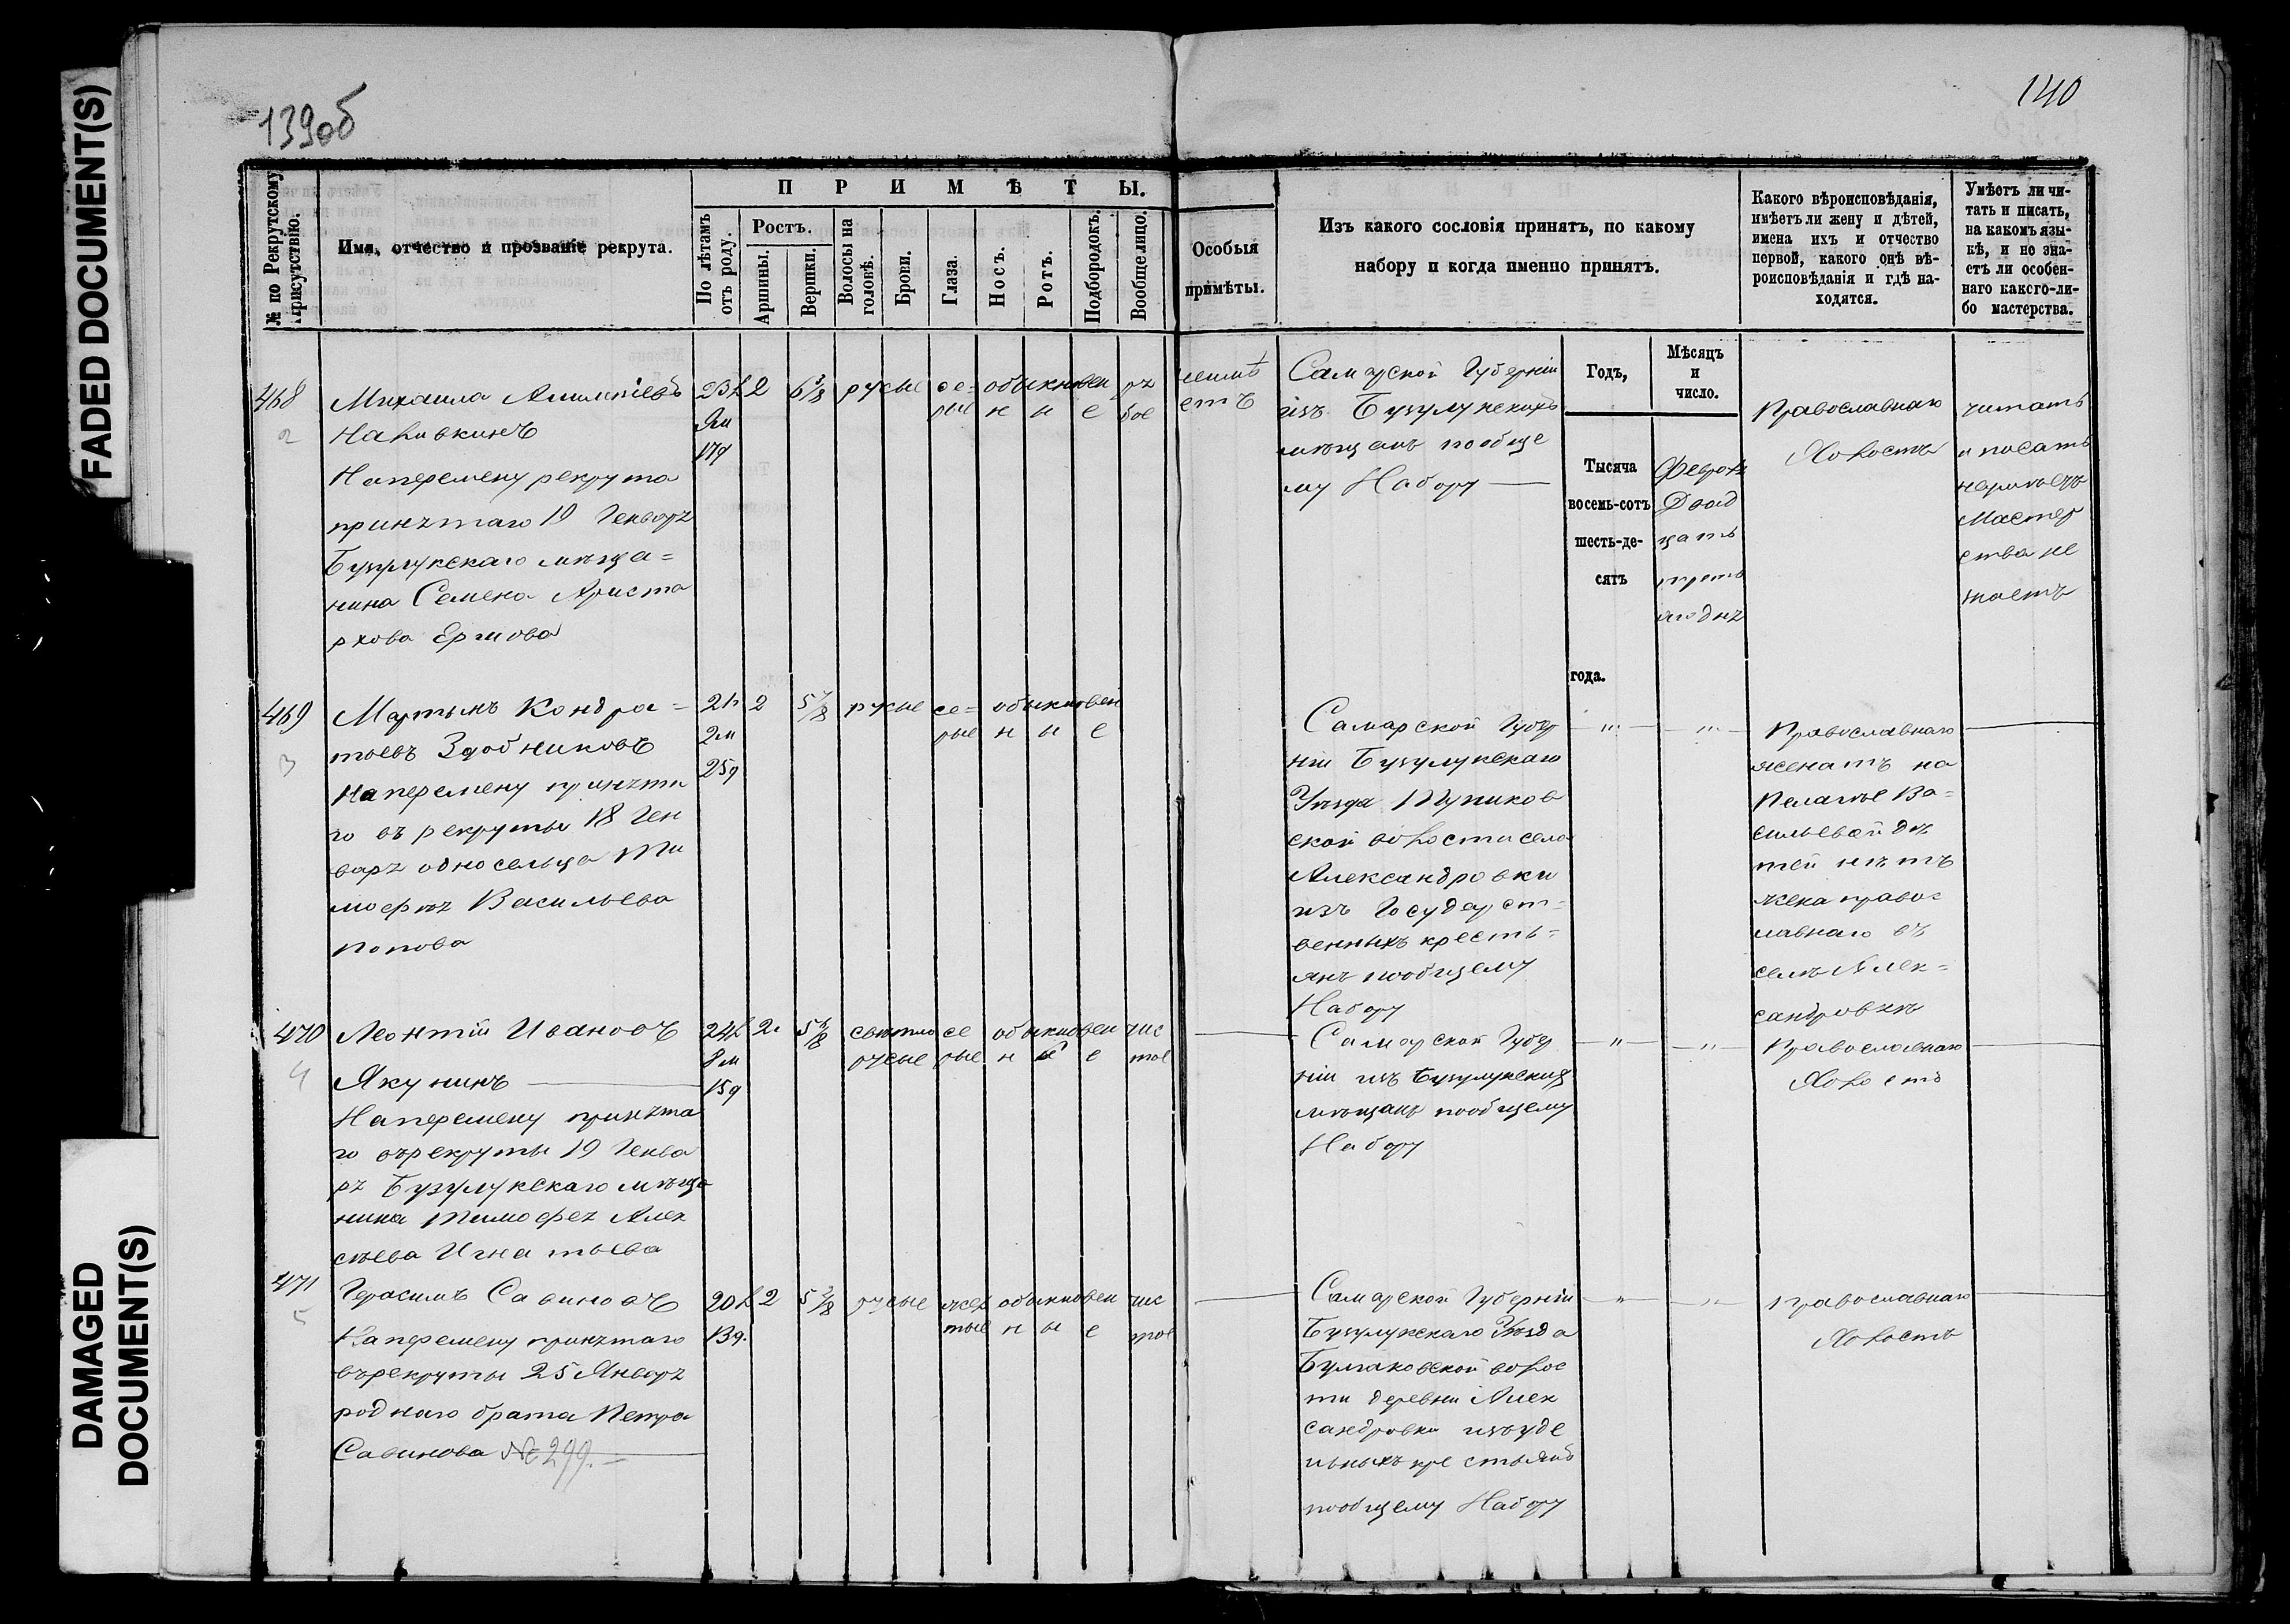 FADED DOCUMENT(S)
DAMAGED
DOCUMENT(S)
139об
140
№ по Рекрутскому
присутствію.
Имя, отчество и прозваніе рекрута.
ПРИМѢТЫ.
По лѣтамъ
отъ роду.
Ростъ.
Аршины.
Вершки.
Волосы на
головѣ.
Брови.
Глаза.
Носъ.
Ротъ.
Подбородокъ.
Вообще лицо.
Особыя
примѣты.
Изъ какого сословія принятъ, по какому
набору и когда именно принятъ.
Какого вѣроисповѣданія,
имѣетъ ли жену и дѣтей,
имена ихъ и отчество
первой, какого онѣ вѣ-
роисповѣданія и гдѣ на-
ходятся.
Умѣетъ ли чи-
тать и писать,
на какомъ язы-
кѣ, и не зна-
етъ ли особен-
наго какого-ли-
бо мастерства.
Годъ,
Мѣсяцъ
и
число.
Тысяча
восемь-сотъ
шесть-де-
сятъ
года.
468
2
Михаила
Наливкинъ
На перемену рекрута
принятаго 19 Генваря
Бузулукскаго мѣща=
нина Семена Ариста
рхова Ершова
23л
17д
2
6 3/8
русые
се=
рые
обыкновен
н ы е
ря
бое
Самарской Губерніи
изъ Бузулукскихъ
мѣщанъ по обще
му Набору
Февраля
Двад
цать
треть
яго дня
Православнаго
Холостъ
читать
и писать
Мастер
ства не
знаетъ
469
3
Мартынъ Кондра=
тьевъ Здобниковъ
На перемену приняти
го въ рекруты 18 Ген
варя односельца Ти
мофея Васильева
Попова
21л
2м
25д
2
5 7/8
русые
се=
рые
обыкновен
н ы е
Самарской Губер
ніи Бузулукскаго
Уѣзда
ской волости села
Александровки
изъ Государст=
венныхъ кресть=
янъ пообщему
Набору
" "
Православнаго
женатъ на
Пелагье Ва=
сильевой дѣ
тей нѣтъ
жена правос
лавнаго въ
селѣ Алек=
сандровкѣ
470
4
Леонтій Ивановъ
Якунинъ
На перемену принята
го въ рекруты 19 Генва
ря Бузулукскаго мѣща
нина Тимофея Алек
сѣева Игнатьева
24л
8м
15д
2
5 7/8
свѣтло
русые
се
рые
обыкновен
н ы е
чис
тое
Самарской Губер
ніи изъ Бузулукских
мѣщанъ пообщему
Набору
" "
Православнаго
Холостъ
471
5
Герасимъ Савиновъ
На перемену принятаго
въ рекруты 25 Января
роднаго брата Петра
Савинова № 299.
20л
13д.
2
5 7/8
русые
жел
тые
обыкновен
н ы е
чис
тое
Самарской Губерніи
Бузулукскаго Уѣзда
Булгаковской волос
ти деревни Алек
сандровки изъ уде
льныхъ крестьянъ
пообщему Набору
" "
Православнаго
Холостъ